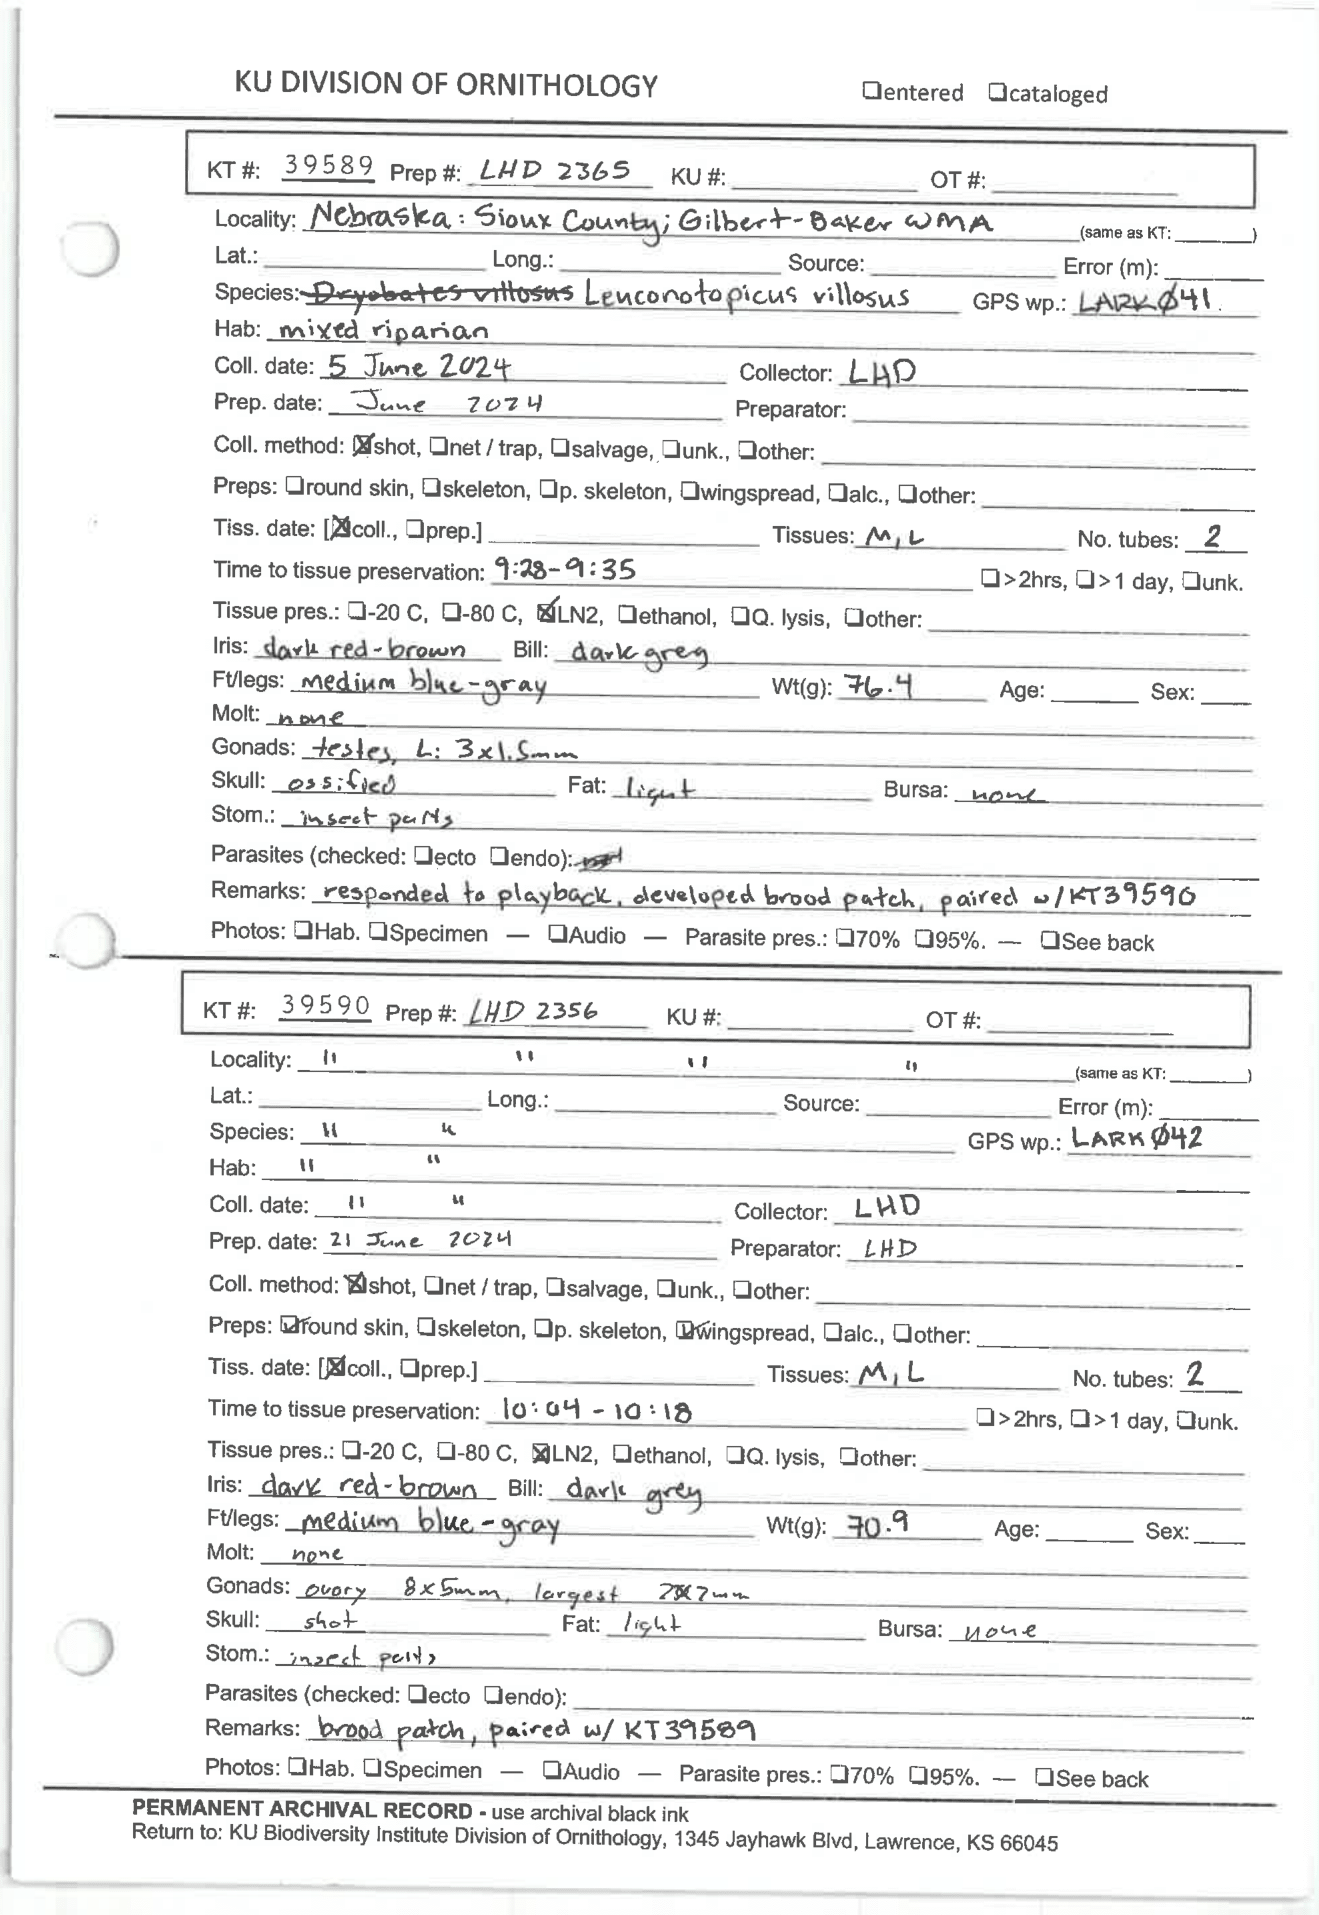 KU DIVISION OF ORNITHOLOGY ❏entered ❏cataloged
KT #: 39589 Prep #: LHD 2365 KU #: OT #:
Locality: Nebraska: Sioux County; Gilbert-Baker WMA (same as KT: )
Lat.: Long.: Source: Error (m):
Species: Dryobates villosus Leuconotopicus villosus GPS wp.: LARKØ41.
Hab: mixed riparian
Coll. date: 5 June 2024 Collector: LHD
Prep. date: June 2024 Preparator:
Coll. method: ☒shot, ❏net / trap, ❏salvage, ❏unk., ❏other:
Preps: ❏round skin, ❏skeleton, ❏p. skeleton, ❏wingspread, ❏alc., ❏other:
Tiss. date: [☒coll., ❏prep.] Tissues: M, L No. tubes: 2
Time to tissue preservation: 9:28-9:35 ❏>2hrs, ❏>1 day, ❏unk.
Tissue pres.: ❏-20 C, ❏-80 C, ☒LN2, ❏ethanol, ❏Q. lysis, ❏other:
Iris: dark red-brown Bill: dark grey
Ft/legs: medium blue-gray Wt(g): 76.4 Age: Sex:
Molt: none
Gonads: testes, L: 3x1.5mm
Skull: ossified Fat: light Bursa: none
Stom.: insect parts
Parasites (checked: ❏ecto ❏endo):
Remarks: responded to playback, developed brood patch, paired w/KT39590
Photos: ❏Hab. ❏Specimen — ❏Audio — Parasite pres.: ❏70% ❏95%. — ❏See back
KT #: 39590 Prep #: LHD 2356 KU #: OT #:
Locality: " " " " (same as KT: )
Lat.: Long.: Source: Error (m):
Species: " " GPS wp.: LARKØ42
Hab: " "
Coll. date: " " Collector: LHD
Prep. date: 21 June 2024 Preparator: LHD
Coll. method: ☒shot, ❏net / trap, ❏salvage, ❏unk., ❏other:
Preps: ☑round skin, ❏skeleton, ❏p. skeleton, ☑wingspread, ❏alc., ❏other:
Tiss. date: [☒coll., ❏prep.] Tissues: M, L No. tubes: 2
Time to tissue preservation: 10:04-10:18 ❏>2hrs, ❏>1 day, ❏unk.
Tissue pres.: ❏-20 C, ❏-80 C, ☒LN2, ❏ethanol, ❏Q. lysis, ❏other:
Iris: dark red-brown Bill: dark grey
Ft/legs: medium blue-gray Wt(g): 70.9 Age: Sex:
Molt: none
Gonads: ovary 8x5mm, largest 2x2mm
Skull: shot Fat: light Bursa: none
Stom.: insect parts
Parasites (checked: ❏ecto ❏endo):
Remarks: brood patch, paired w/ KT39589
Photos: ❏Hab. ❏Specimen — ❏Audio — Parasite pres.: ❏70% ❏95%. — ❏See back
PERMANENT ARCHIVAL RECORD - use archival black ink
Return to: KU Biodiversity Institute Division of Ornithology, 1345 Jayhawk Blvd, Lawrence, KS 66045